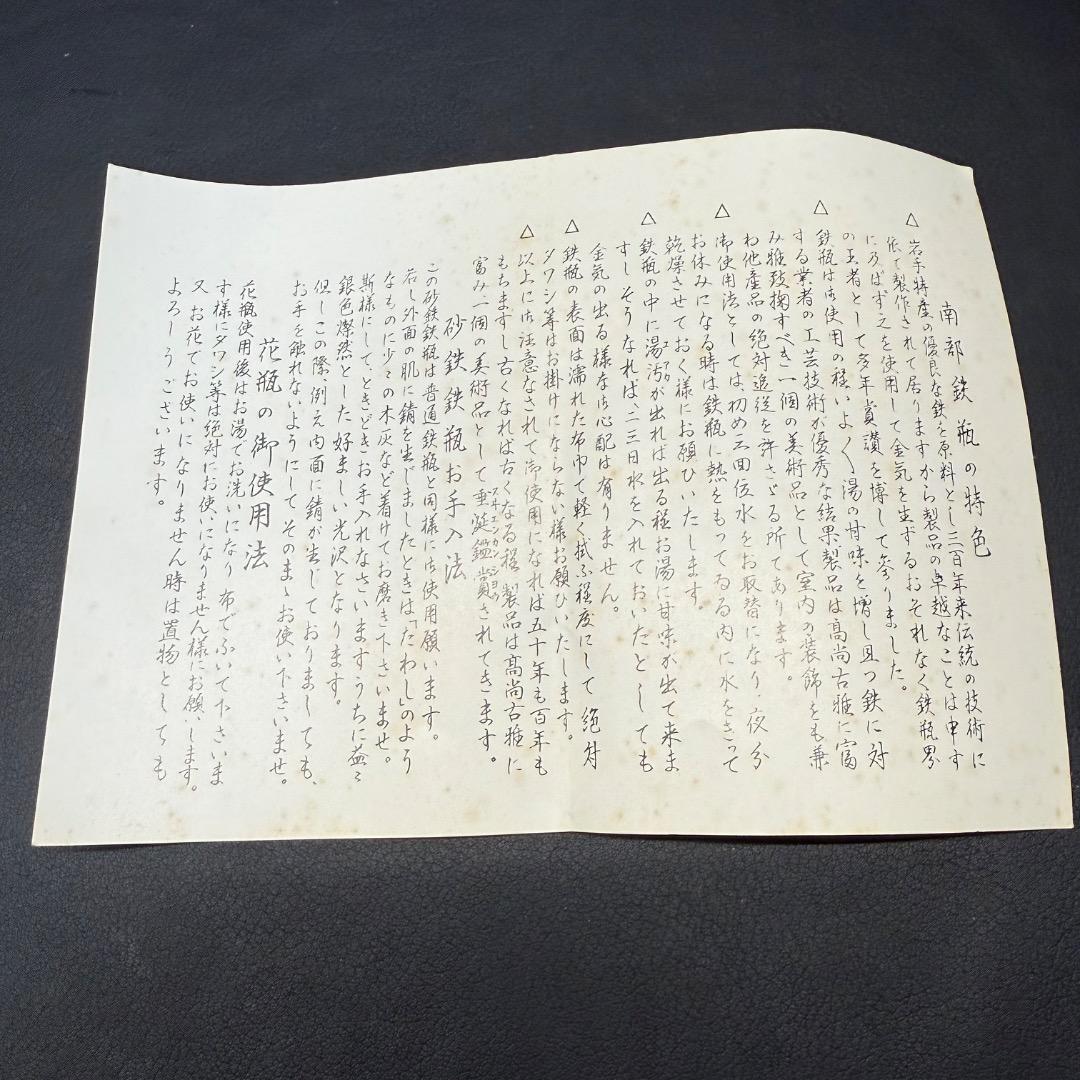 南部鉄瓶の特色
△岩手特産の優良な鉄を原料とし三百年来伝統の技術に
依て製作されて居りますから製品の卓越なことは申す
に及ばず之を使用して金気を生ずるおそれなく鉄瓶界
の王者として多年賞讃を博して参りました。
△鉄瓶は御使用の程いよ〱湯の甘味を増し且つ鉄に対
する業者の工芸技術が優秀な結果製品は高尚古雅に富
み雅致掬すべき一個の美術品として室内の装飾をも兼
ね他産品の絶対追従を許さゞる所であります。
△御使用法としては初め三回位水をお取替になり・夜分
お休みになる時は鉄瓶に熱をもってゐる内に水をきって
乾燥させておく様にお願ひいたします。
△鉄瓶の中に湯汚が出れば出る程お湯に甘味が出て来ま
すしそうなれば二三日水を入れておいたとしても
金気の出る様な御心配は有りません。
△鉄瓶の表面は濡れた布巾て軽く拭ふ程度にして絶対
タワシ等はお掛けにならない様お願ひいたします。
△以上に御注意なされて御使用になれば五十年も百年も
もちますし古くなれば古くなる程製品は高尚古雅に
富み一個の美術品として垂涎鑑賞されてきます。
砂鉄鉄瓶お手入法
この砂鉄鉄瓶は普通鉄瓶と同様に御使用願います。
若し外面の肌に錆を生じましたときは「たわし」のよう
なものに少々の木灰など着けてお磨き下さいませ。
斯様にして、ときどきお手入れなさいますうちに益々
銀色燦然とした好ましい光沢となります。
但しこの際、例え内面に錆が生じておりましても、
お手を触れないようにしてそのまゝお使い下さいませ。
花瓶の御使用法
花瓶使用後はお湯でお洗いになり布でふいて下さいま
す様にタワシ等は絶対にお使いになりません様にお願いします。
又お花でお使いになりません時は置物としても
よろしうございます。